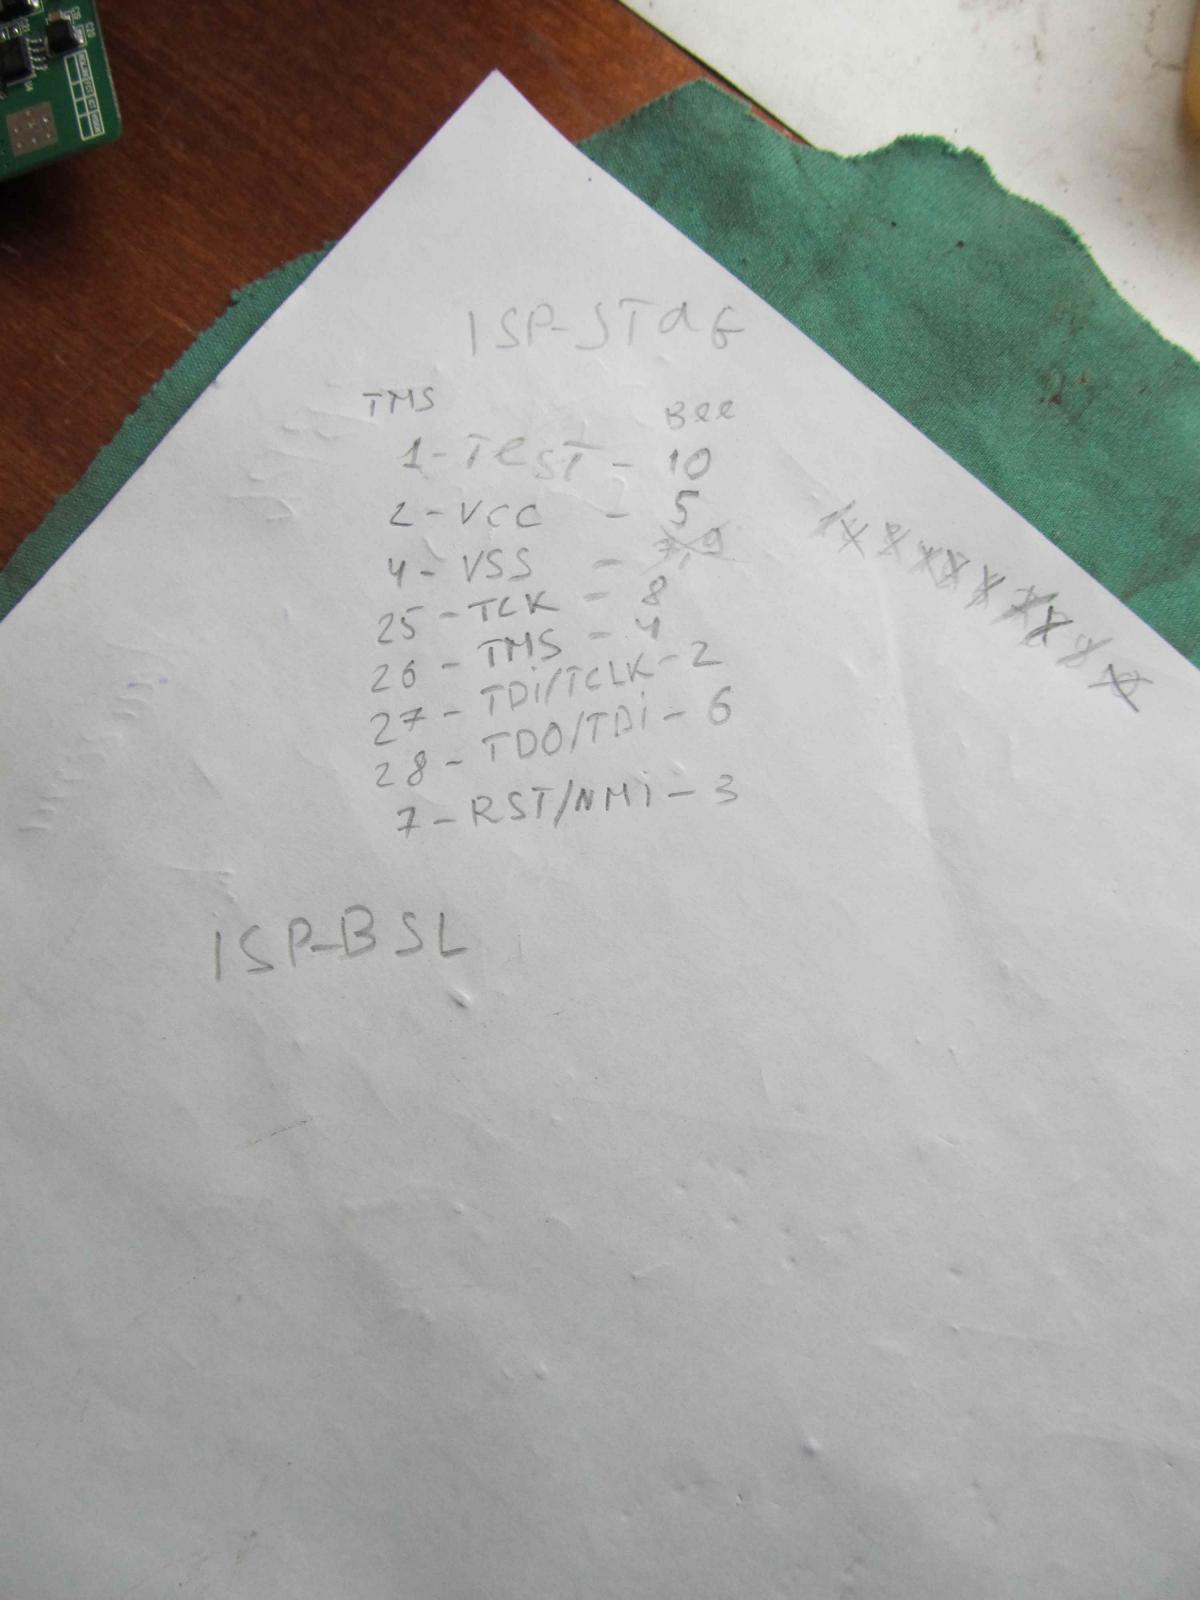 ISP-JTAG
TMS Bee
1-TEST - 10
2-VCC - 5
4-VSS - 7,9
25-TCK - 8
26-TMS - 4
27-TDi/TCLK-2
28-TDO/TDi-6
7-RST/NMi-3
ISP-BSL